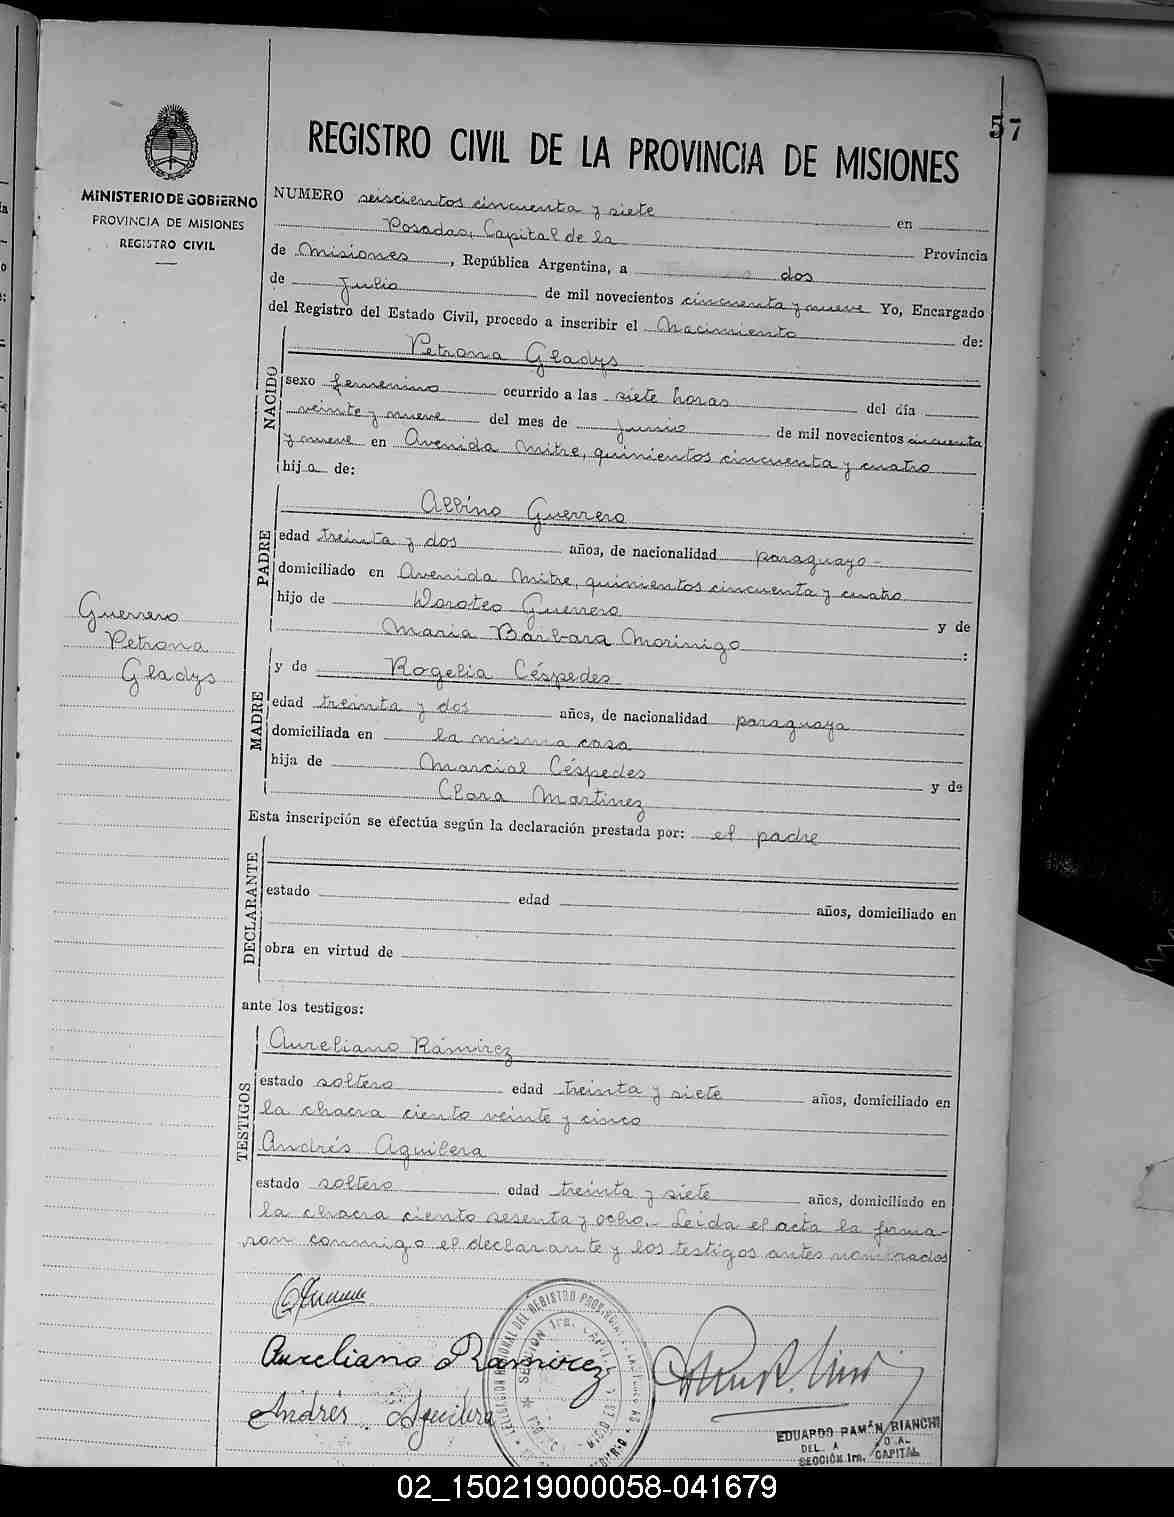 57
REGISTRO CIVIL DE LA PROVINCIA DE MISIONES
MINISTERIO DE GOBIERNO
PROVINCIA DE MISIONES
REGISTRO CIVIL
NUMERO seiscientos cincuenta y siete en
Posadas, Capital de la Provincia
de Misiones, República Argentina, a dos
de Julio de mil novecientos cincuenta y nueve Yo, Encargado
del Registro del Estado Civil, procedo a inscribir el Nacimiento de:
NACIDO
Petrona Gladys
sexo femenino ocurrido a las siete horas del día
veinte y nueve del mes de junio de mil novecientos cincuenta
y nueve en Avenida Mitre, quinientos cincuenta y cuatro
hija de:
PADRE
Albino Guerrero
edad treinta y dos años, de nacionalidad paraguayo
domiciliado en Avenida Mitre, quinientos cincuenta y cuatro
hijo de Doroteo Guerrero y de
María Bárbara Morínigo :
Guerrero
Petrona
Gladys
MADRE
y de Rogelia Céspedes
edad treinta y dos años, de nacionalidad paraguaya
domiciliada en la misma casa
hija de Marcial Céspedes y de
Clara Martínez
Esta inscripción se efectúa según la declaración prestada por: el padre
DECLARANTE
estado edad años, domiciliado en
obra en virtud de
ante los testigos:
TESTIGOS
Aureliano Rámirez
estado soltero edad treinta y siete años, domiciliado en
la chacra ciento veinte y cinco
Andrés Aguilera
estado soltero edad treinta y siete años, domiciliado en
la chacra ciento sesenta y ocho. Leída el acta la firma-
ron conmigo el declarante y los testigos antes nombrados
Aureliano Ramirez
Andrés Aguilera
EDUARDO RAMÓN BIANCHI
SECCIÓN 1ra. CAPITAL
02_150219000058-041679